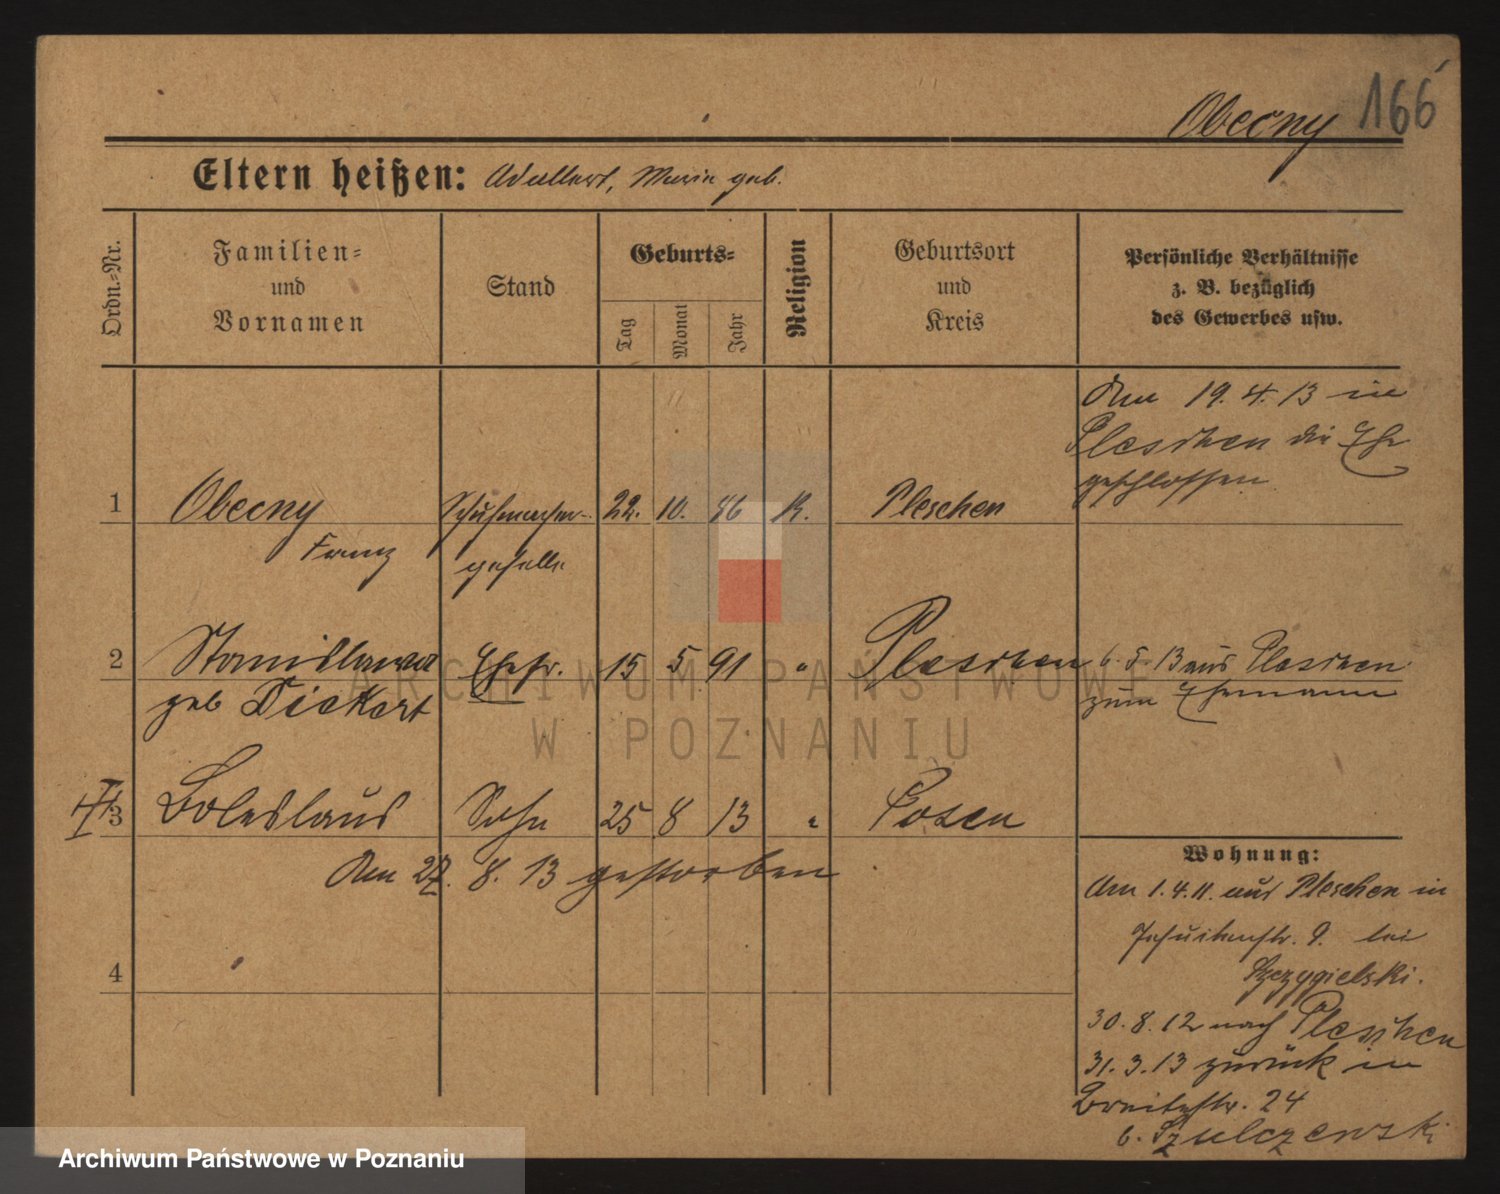 Obecny 166
Eltern heißen: Adalbert, Maria geb.
Ordn.-Nr.
Familien-
und
Vornamen
Stand
Geburts-
Tag
Monat
Jahr
Religion
Geburtsort
und
Kreis
Persönliche Verhältnisse
z. B. bezüglich
des Gewerbes usw.
Am 19.4.13 in
Pleschen die Ehe
geschlossen.
1 Obecny Schuhmacher- 22. 10. 86 K. Pleschen
Franz geselle
2 Stanislawa Ehefr. 15 5 91 " Pleschen 6.5.13 aus Pleschen
geb Dickert zum Ehemann
3 Boleslaus Sohn 25 8 13 " Posen
Am 27. 8. 13 gestorben
4
Wohnung:
Am 1.4.11. aus Pleschen in
Jesuitenstr. 9. bei
Szczygielski.
30.8.12 nach Pleschen
31.3.13 zurück in
Breitestr. 24
b. Szulczewski
ARCHIWUM PAŃSTWOWE
W POZNANIU
Archiwum Państwowe w Poznaniu